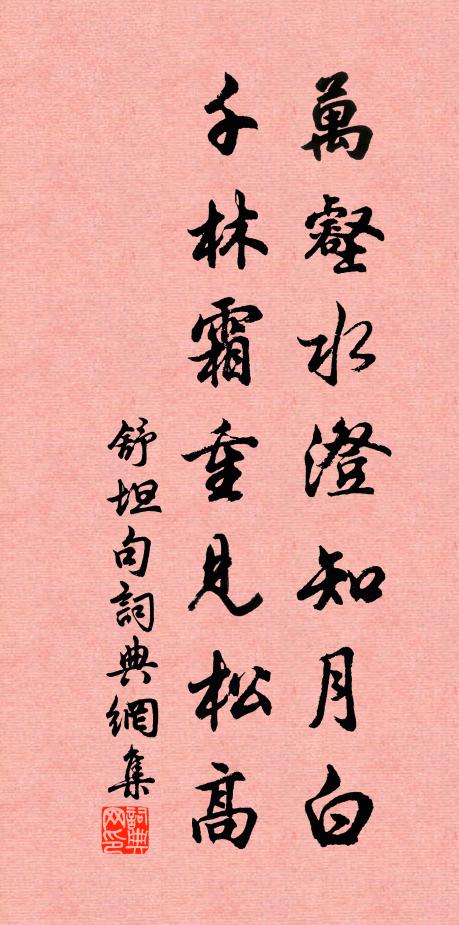 萬壑水澄知月白
千林霜重見松高
舒坦句詞典網集
詞典网印